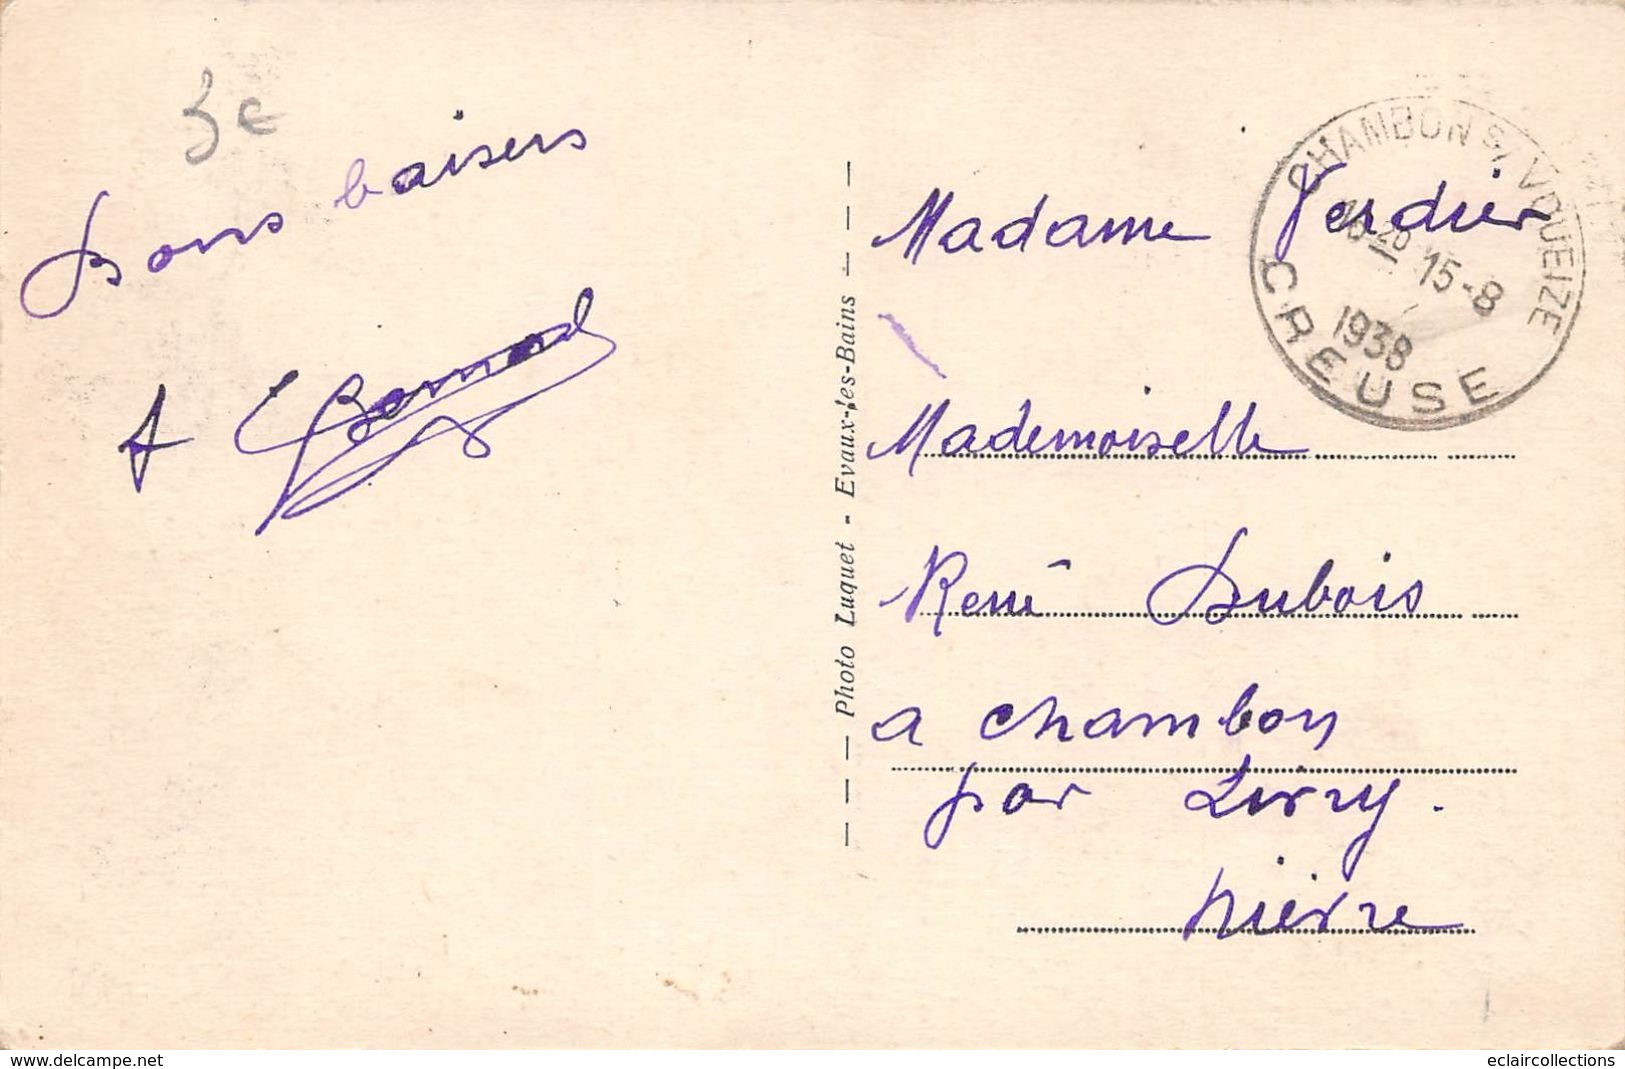 3€
Bons baisers
Madame Verdier
Mademoiselle
René Dubois
a Chambon
par Livry.
Nièvre
CHAMBON S/ VOUEIZE
15-8
1938
CREUSE
Photo Luquet - Evaux-les-Bains
www.delcampe.net
eclaircollections